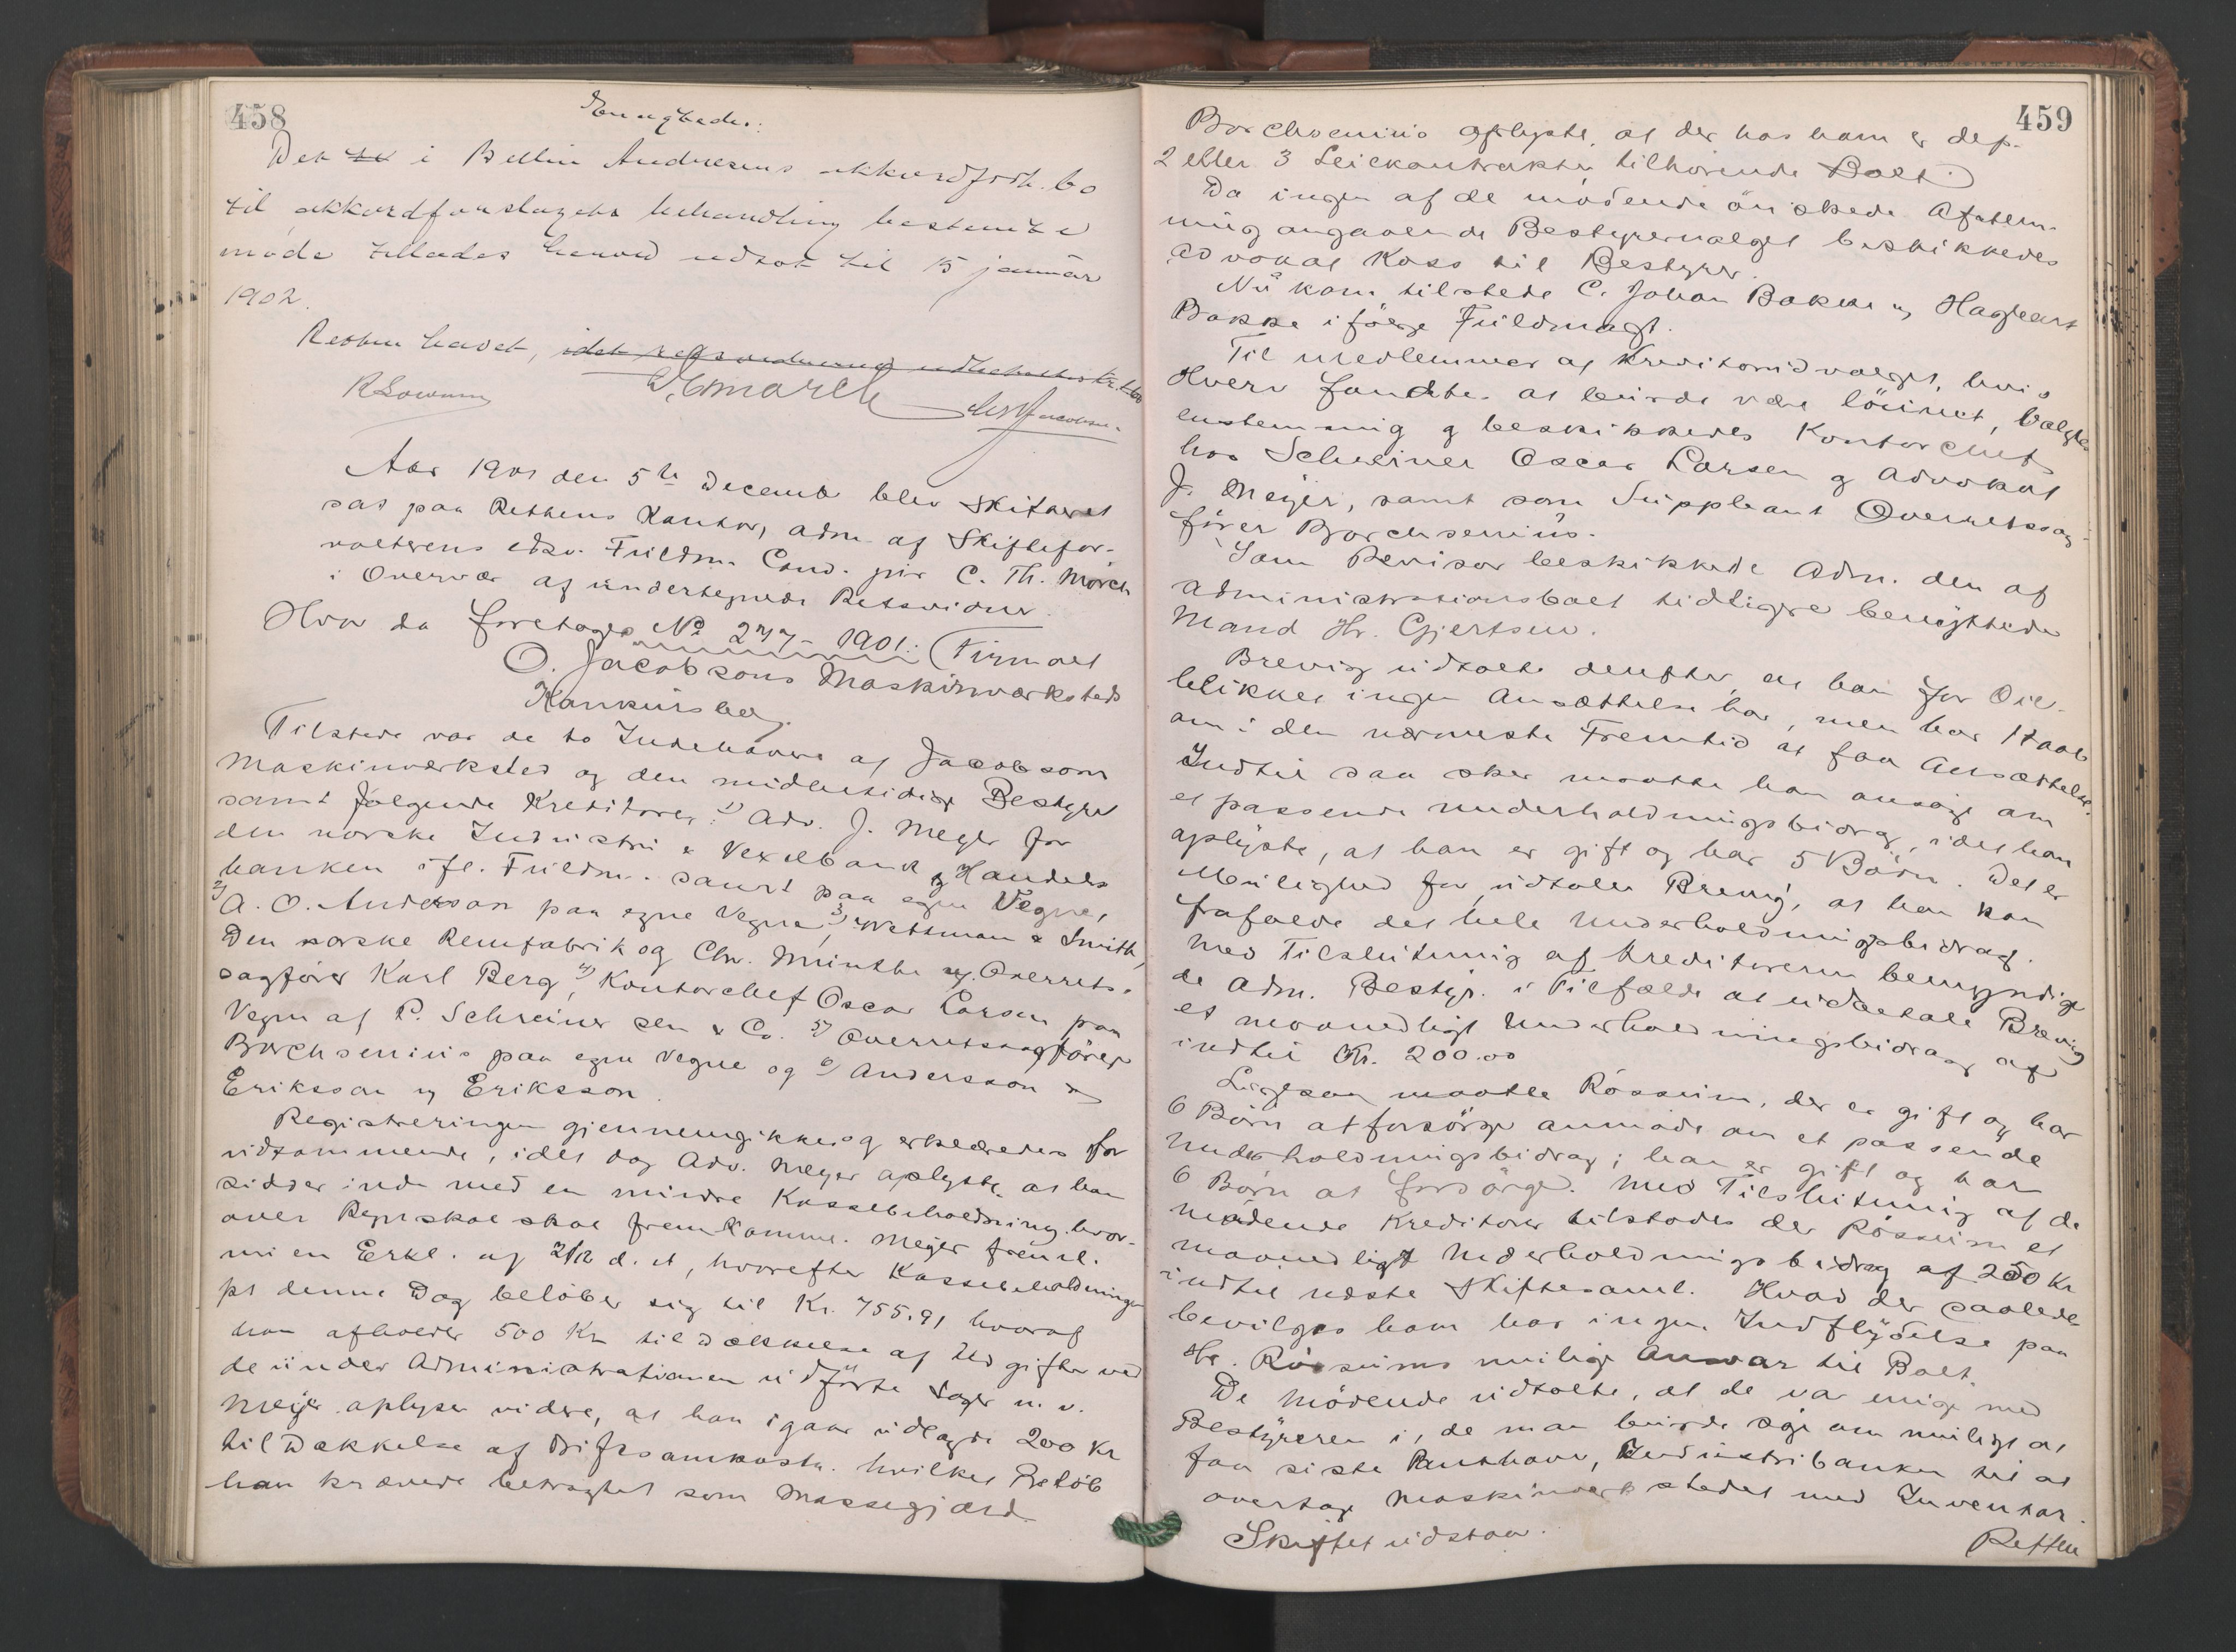 458
Det i Bellin Andresens akkordforh. bo
til akkordforslagets behandling bestemte
møde tillades herved udsat til 15 januar
1902.
Retten hævet,
Aar 1901 den 5te Decemb blev Skifteret
sat paa Rettens Kontor, adm. af Skiftefor-
valterens edsv. Fuldm. Cand. jur C. Th. Mörch
i Overvær af undertegnede Retsvidner.
Hvor da foretoges No 277-1901: Firmaet
O. Jacobsons Maskinværksteds
Konkursbo.
Tilstede var de to Indehavere af Jacobsons
Maskinværksted og den midlertidige Bestyrer
samt følgende Kreditorer: 1) Adv. J. Meyer for
den norske Industri & Vexelbank & Handels
banken ifl. Fuldm. samt paa egne Vegne,
2) A. O. Andersson paa egne Vegne, 3) Wettman & Smith,
Den norske Remfabrik og Chr. Minthe v. Overrets-
sagfører Karl Berg, 4) Kontorchef Oscar Larsen paa
Vegne af P. Schreiner sen & Co. 5) Overretssagfører
Borchsenius paa egne Vegne og 6) Andersson
Eriksson & Eriksson.
Registreringen gjennemgikkes og erklæredes for
vidkommende, idet dog Adv. Meyer oplyste, at han
sidder inde med en mindre Kassebeholdning, hvor-
over Regnskab skal fremkomme. Meyer freml.
en Erkl. af 2/12 d. A., hvorefter Kassebeholdningen
pr denne Dag beløber sig til Kr. 755.91 hvoraf
han afholder 500 Kr til Dækkelse af Udgifter ved
de under Administrationen udførte Sager m. v.
Meyer oplyser videre, at han igaar udlagde 200 Kr
til Dækkelse af Driftsomkostn. hvilket Beløb
han krævede betragtet som Massegjæld
459
Borchsenius oplyste, at der hos ham er dep.
2 eller 3 Leiekontrakter tilhørende Boet.
Da ingen af de mødende ønskede Afstem-
ning angaaende Bestyrervalget beskikkedes
Advokat Koss til Bestyrer.
Nu kom tilstede C. Johan Bakke og Hagbart
Bakke ifølge Fuldmagt.
Til Medlemmer af Kreditorudvalget, hvis
Hverv fandtes at burde være lönnet, valgtes
enstemmig og beskikkedes Kontorchef
hos Schreiner Oscar Larsen og Advokat
J. Meyer, samt som Suppleant Overretssag-
fører Borchsenius.
Som Revisor beskikkede Adm. den af
Administrationsboet tidligere benyttede
Mand Hr. Gjertsen.
Brevig udtalte derefter, at han for Øie-
blikket ingen Ansættelse har, men har Haab
om i den nærmeste Fremtid at faa Ansættelse.
Indtil saa sker maatte han ansøge om
et passende Underholdningsbidrag, idet han
oplyste, at han er gift og har 5 Børn. Det er
Mulighed for, udtaler Brevig, at han kan
frafalde det hele Underholdningsbidrag.
Med Tilslutning af Kreditorerne bemyndige-
de Adm. Bestyr. i Tilfælde at udbetale Brevig
et maanedligt Underholdningsbidrag af
indtil Kr. 200.00
Ligesaa maatte Rössum, der er gift og har
6 Børn at forsørge anmode om et passende
Underholdningsbidrag; han er gift og har
6 Børn at forsørge. Med Tilslutning af de
mødende Kreditorer tilstodes der Rössum et
maanedligt Underholdningsbidrag af 250 Kr
indtil næste Skiftesaml. Hvad der saaledes
bevilges ham har ingen Indflydelse paa
Hr. Rössums mulige Ansvar til Boet.
De Mødende udtalte, at de var enige med
Bestyreren i, at man burde søge om muligt at
faa siste Panthaver, Industribanken til at
overtage Maskinværkstedet med Inventar.
Skiftet udstaar.
Retten